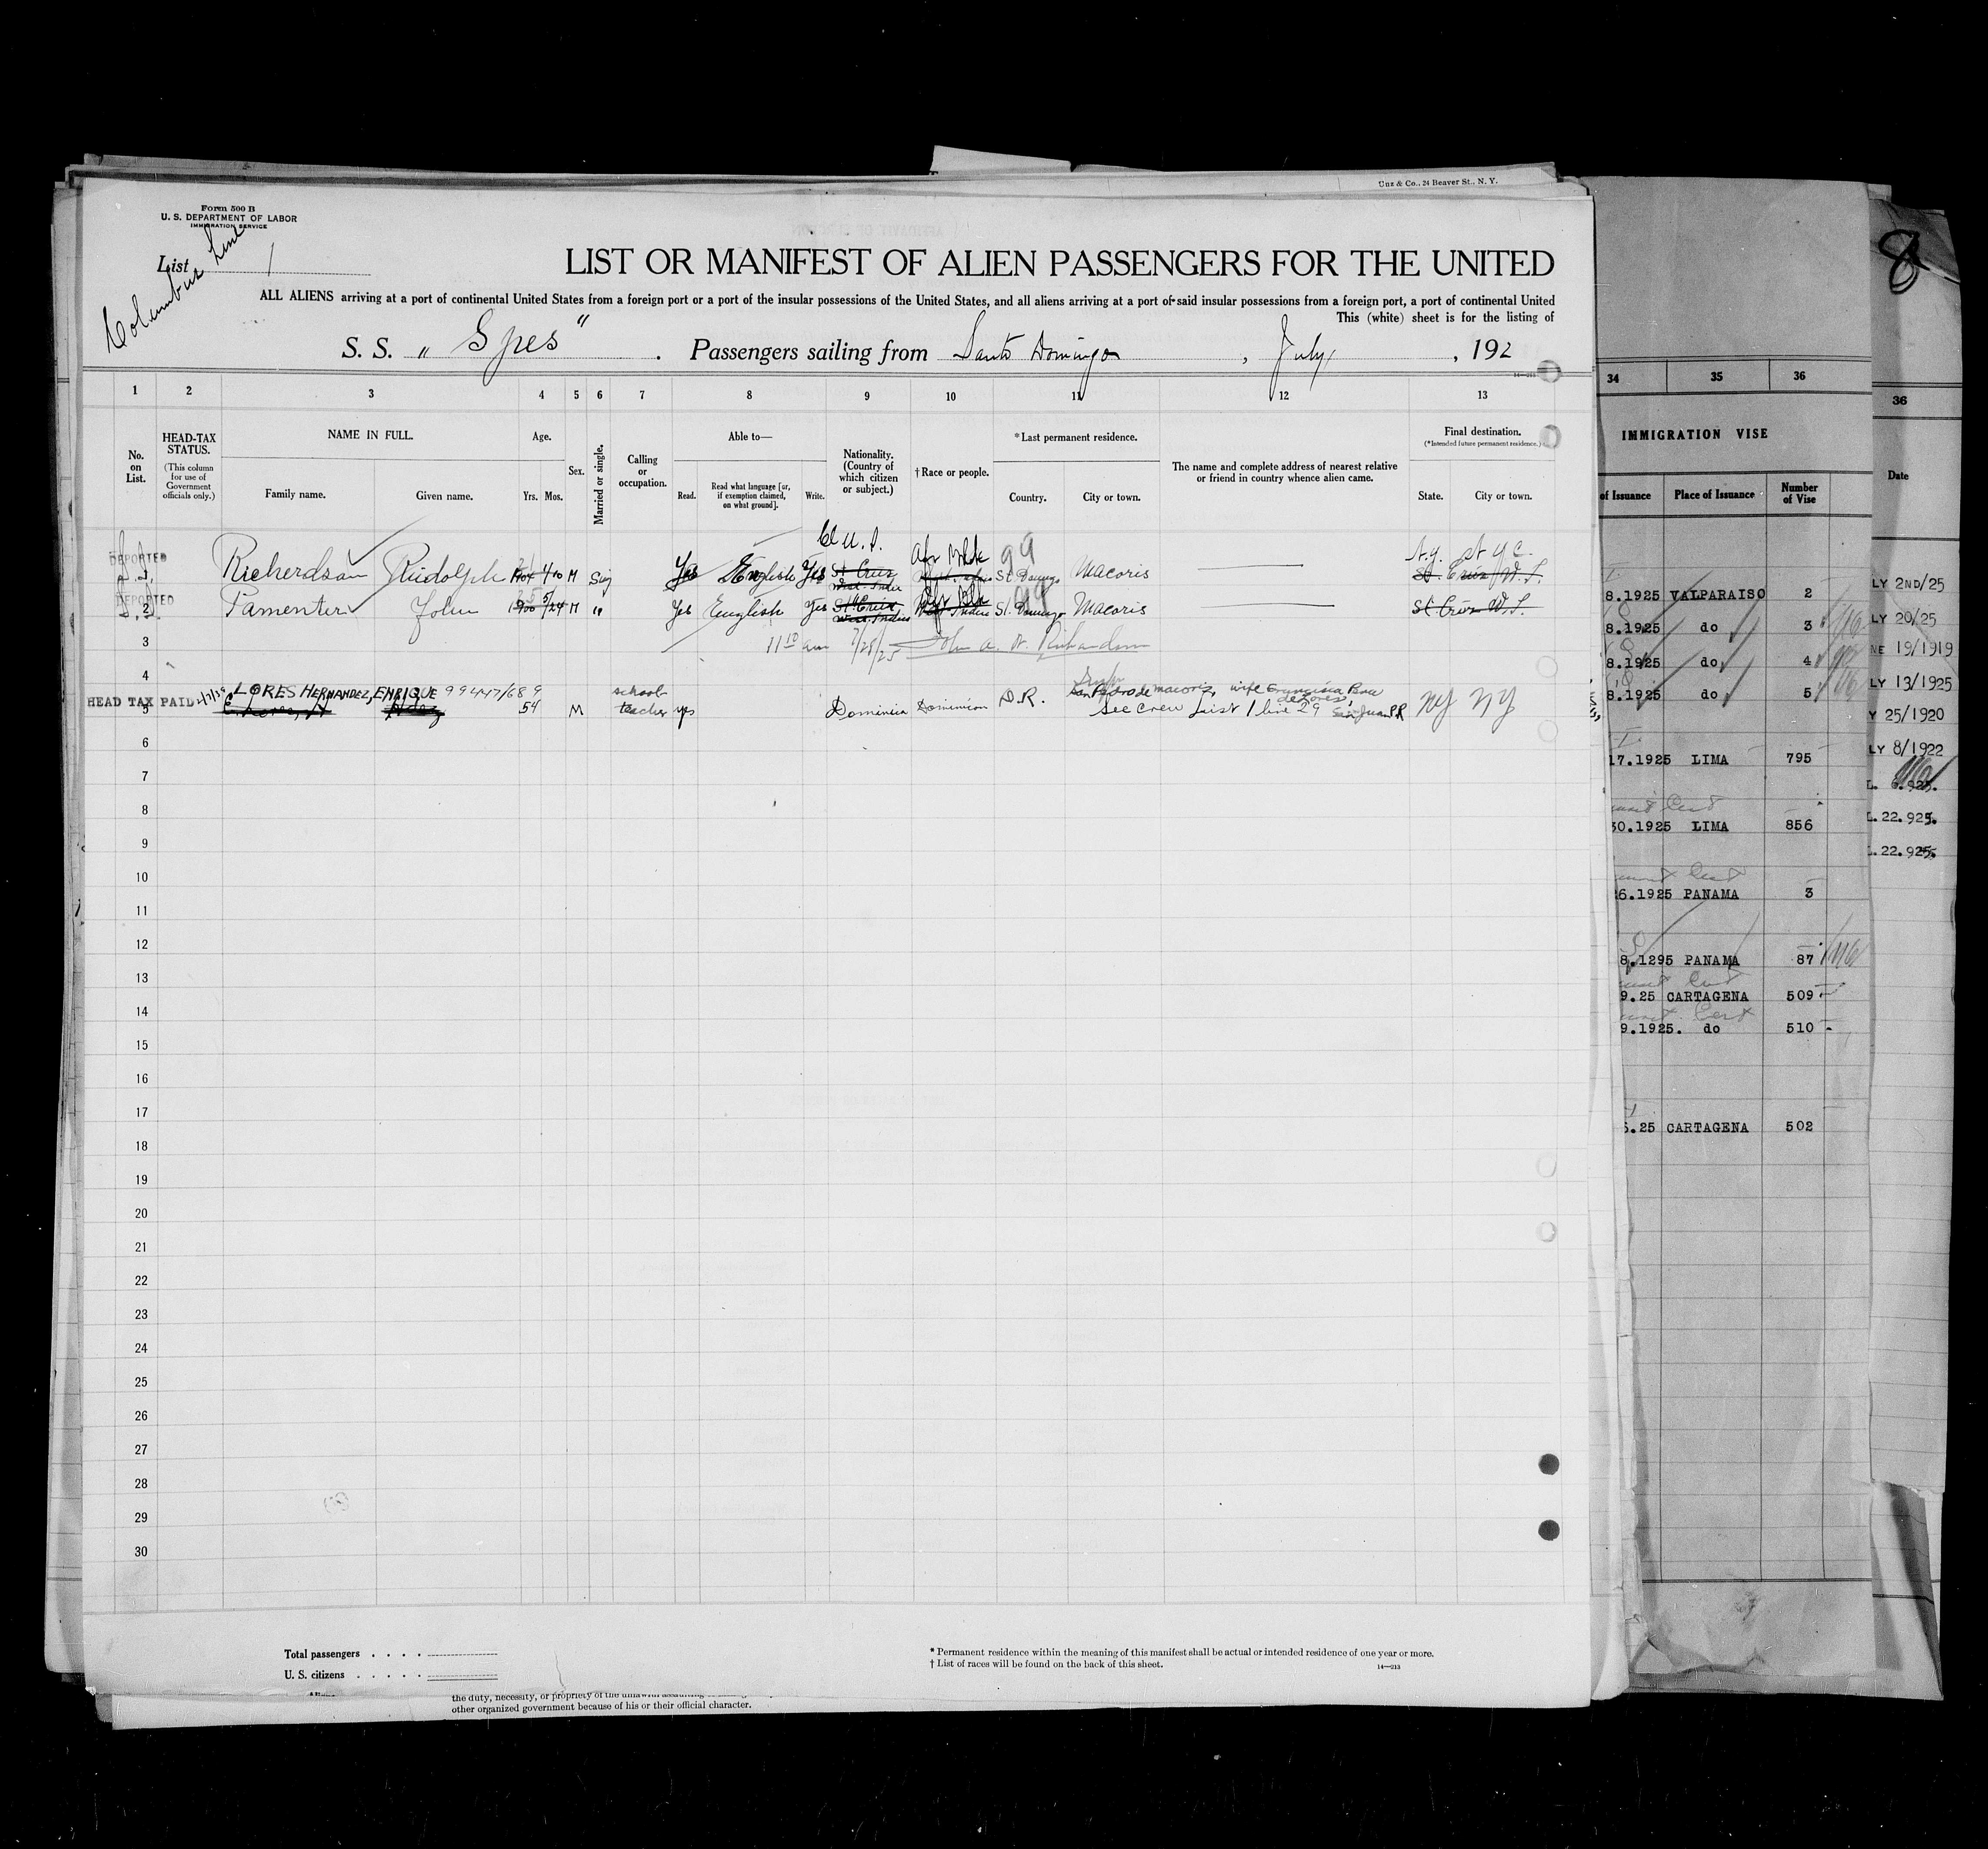 Unz & Co., 24 Beaver St., N. Y.
Form 500 B
U. S. DEPARTMENT OF LABOR
IMMIGRATION SERVICE
Columbus Line
List 1
LIST OR MANIFEST OF ALIEN PASSENGERS FOR THE UNITED
ALL ALIENS arriving at a port of continental United States from a foreign port or a port of the insular possessions of the United States, and all aliens arriving at a port of said insular possessions from a foreign port, a port of continental United
This (white) sheet is for the listing of
S. S. "Spes". Passengers sailing from Santo Domingo, July, 192
1 2 3 4 5 6 7 8 9 10 11 12 13
No. on List.
HEAD-TAX STATUS.
(This column for use of Government officials only.)
NAME IN FULL.
Family name. Given name.
Age.
Yrs. Mos.
Sex.
Married or single.
Calling or occupation.
Able to—
Read. Read what language [or, if exemption claimed, on what ground]. Write.
Nationality. (Country of which citizen or subject.)
†Race or people.
*Last permanent residence.
Country. City or town.
The name and complete address of nearest relative or friend in country whence alien came.
Final destination.
(*Intended future permanent residence.)
State. City or town.
U. S. Afr Blk 99 N.Y. N Y C.
DEPORTED
Richerdson Rudolph 1904 4/10 M Sig Yes English Yes St Crus West. Indie St Domingo Macoris St. Crus W. I.
DEPORTED
2 Pamenter John 1900 5/24 M " Yes English Yes St Crus West. Indies Afr Blk West Indies St. Domingo Macoris St. Crus W. I.
3 11 10 am 7/28/25 John A. W. Richardson
4
HEAD TAX PAID LORES HERNANDEZ, ENRIQUE 99447/689 school San Pedro de Macoris, wife Francisca
5 54 M teacher yes Dominica Dominion D.R. See Crew List 1 line 29 San Juan P.R NY NY
6
7
8
9
10
11
12
13
14
15
16
17
18
19
20
21
22
23
24
25
26
27
28
29
30
Total passengers
U. S. citizens
* Permanent residence within the meaning of this manifest shall be actual or intended residence of one year or more.
† List of races will be found on the back of this sheet.
14—213
other organized government because of his or their official character.
34 35 36
IMMIGRATION VISE
of Issuance Place of Issuance Number of Vise
8.1925 VALPARAISO 2
8.1925 do 3
8.1925 do 4
8.1925 do 5
17.1925 LIMA 795
30.1925 LIMA 856
26.1925 PANAMA 3
8.1295 PANAMA 87
9.25 CARTAGENA 509
9.1925. do 510
.25 CARTAGENA 502
8
36
Date
LY 2ND/25
LY 20/25
NE 19/1919
LY 13/1925
Y 25/1920
LY 8/1922
L. 6.925.
L.22.925.
L.22.925.